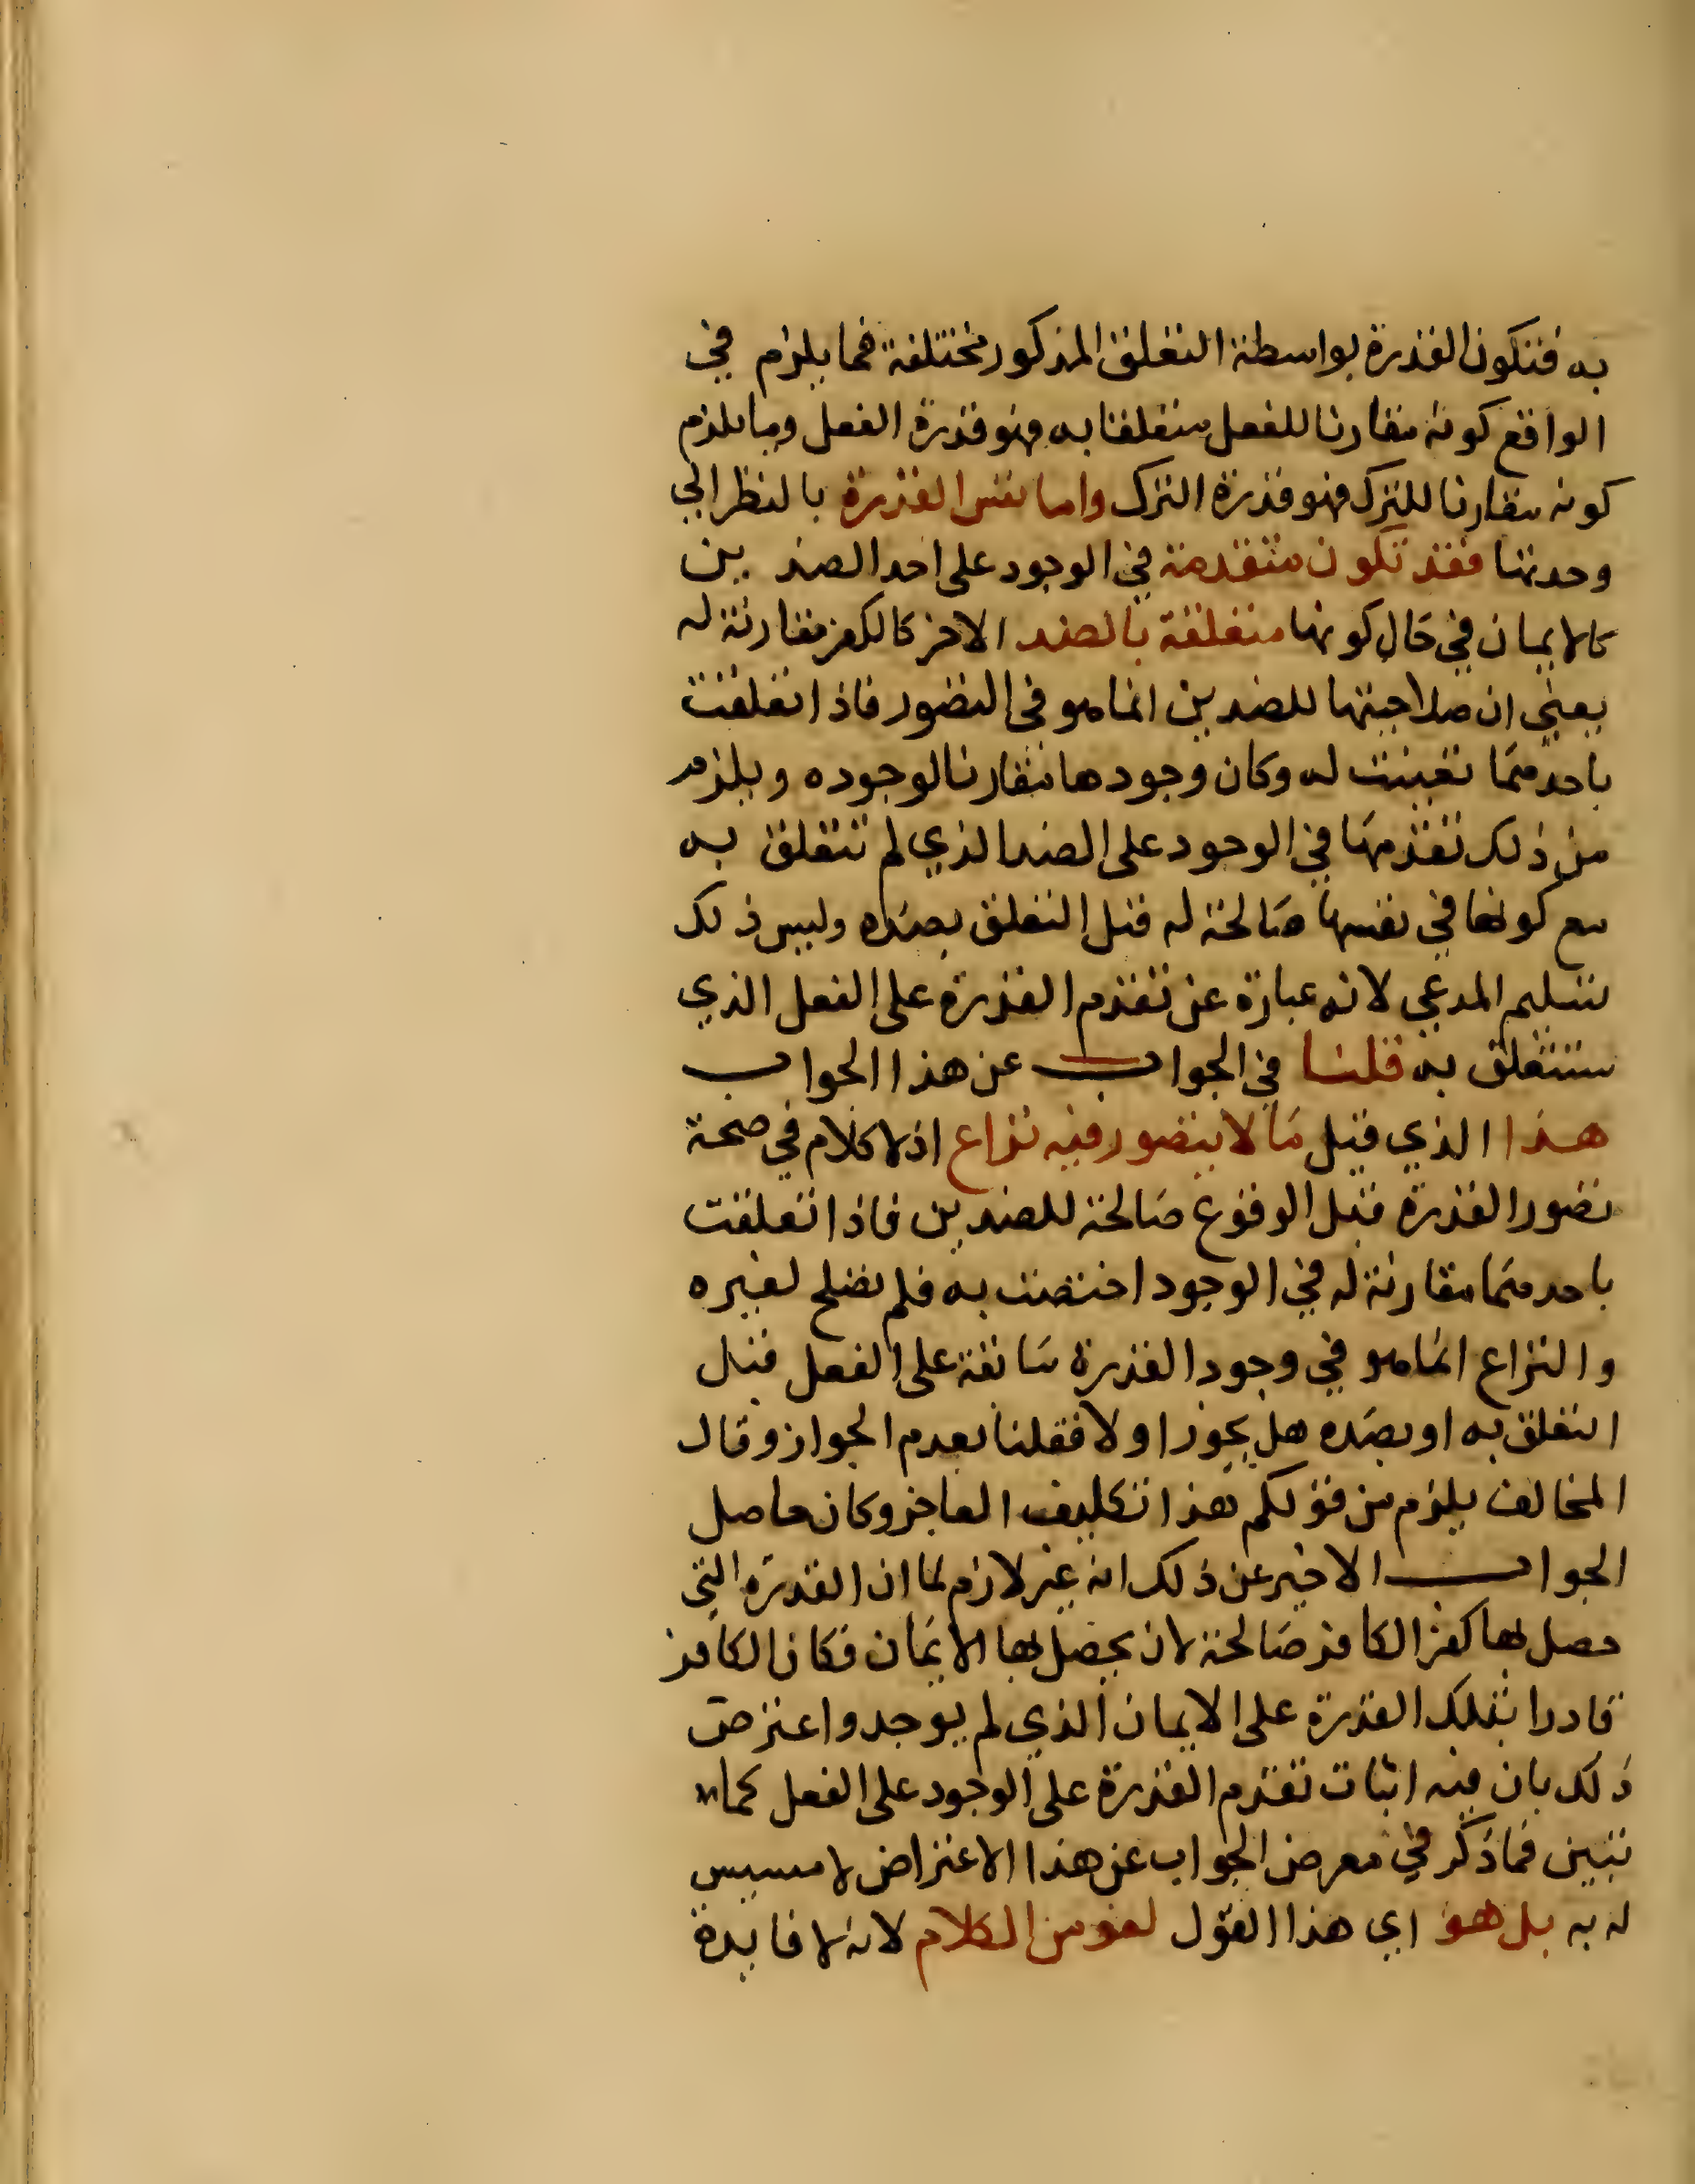 به فتكون القدرة بواسطة التعلق المذكور مختلفة فما يلزم في
الواقع كونه مقارنا للفعل متعلقا به فهو قدرة الفعل وما يلزم
كونه مقارنا للترك فهو قدرة الترك واما نفس القدرة بالنظر الي
وحدتها فقد تكون متقدمة في الوجود على احد الضدين
كالايمان في حال كونها متعلقة بالضد الاخر كالكفر مقارنة له
يعني ان صلاحيتها للضدين انما هو في التصور فاذا تعلقت
باحدهما تعينت له وكان وجودها مقارنا لوجوده ويلزم
من ذلك تقدمها في الوجود على الضد الذي لم تتعلق به
مع كونها في نفسها صالحة له قبل التعلق بضده وليس ذلك
تسليم المدعي لانه عبارة عن تقدم القدرة على الفعل الذي
ستتعلق به قلنا في الجواب عن هذا الجواب
هذا الذي قيل مما لا يتصور فيه نزاع اذ لا كلام في صحة
تصور القدرة قبل الوقوع صالحة للضدين فاذا تعلقت
باحدهما مقارنة له في الوجود اختصت به فلم تصلح لغيره
والنزاع انما هو في وجود القدرة سابقة على الفعل قبل
التعلق به او بضده هل يجوز او لا فقلنا بعدم الجواز وقال
المخالف يلزم من قولكم هذا تكليف العاجز وكان حاصل
الجواب الاخير عن ذلك انه غير لازم لما ان القدرة التي
حصل بها كفر الكافر صالحة لان يحصل بها الايمان فكان الكافر
قادرا بتلك القدرة على الايمان الذي لم يوجد واعترض
ذلك بان فيه اثبات تقدم القدرة على الوجود على الفعل كما
تبين فما ذكر في معرض الجواب عن هذا الاعتراض لا مسيس
له به بل هو اي هذا القول لغو من الكلام لانه لا فايدة